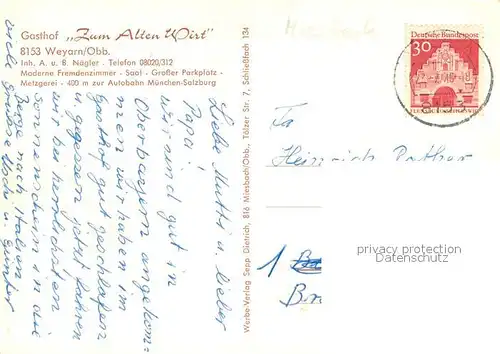 Gasthof „Zum Alten Wirt"
8153 Weyarn/Obb.
Inh. A. u. B. Nägler - Telefon 08020/312
Moderne Fremdenzimmer - Saal - Großer Parkplatz -
Metzgerei - 400 m zur Autobahn München-Salzburg
Liebe Mutti u. lieber
Papa!
wir sind gut in
Oberbayern angekom=
men wir haben im
Gasthof gut geschlafen
u. gegessen jetzt fahren
wir bei herrlichstem
Sonnenschein in die
nach Italien
viele Grüsse u. Günter
Werbe-Verlag Sepp Dietrich, 816 Miesbach/Obb., Tölzer Str. 7, Schließfach 134
Deutsche Bundespost
30
Fa
Heinrich
1
privacy protection
watermark